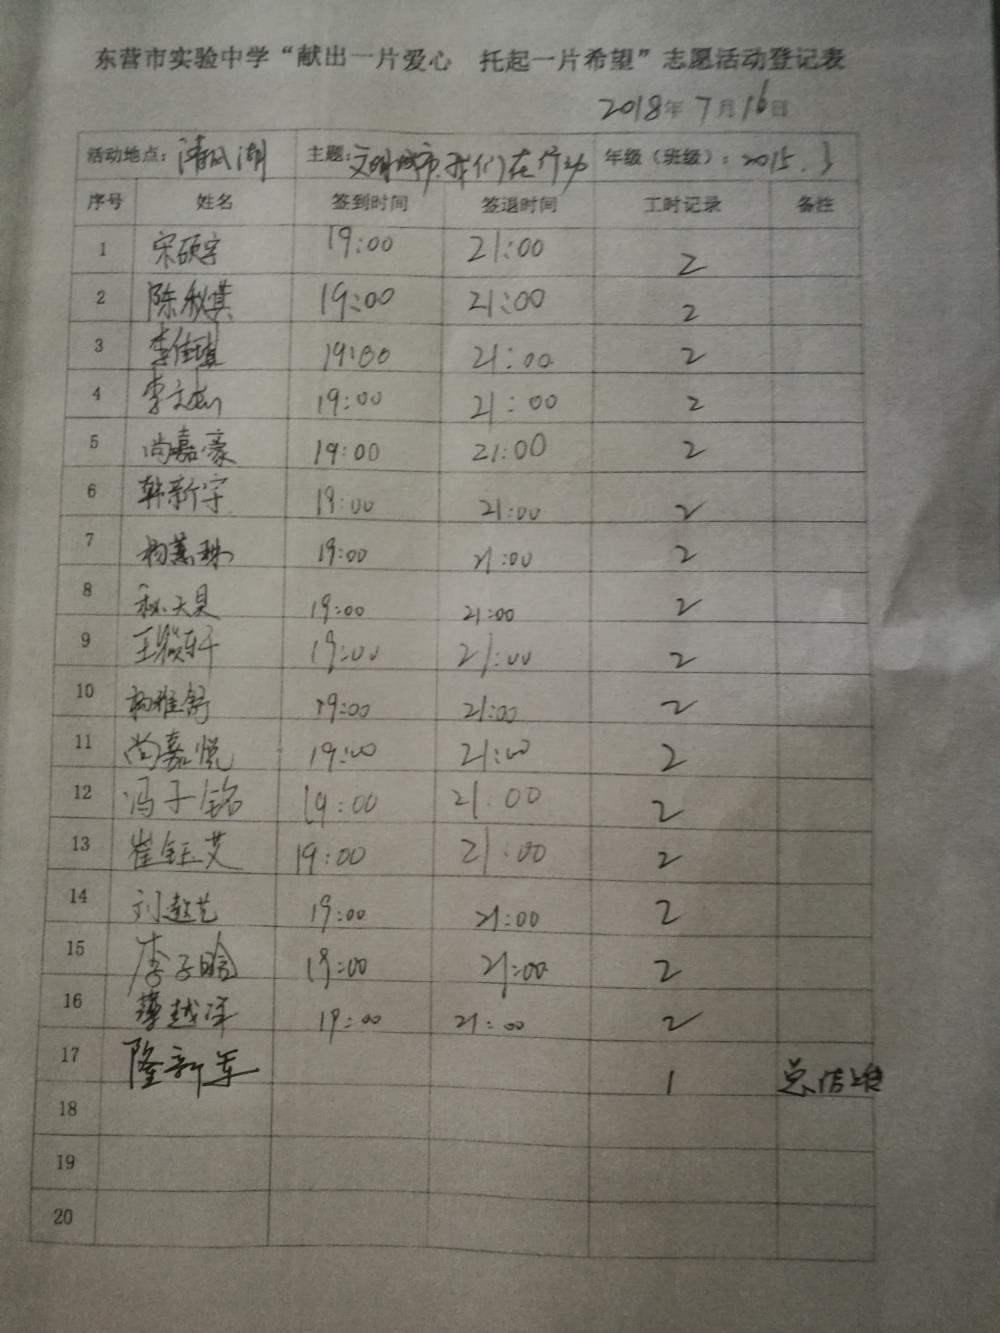 东营市实验中学“献出一片爱心 托起一片希望”志愿活动登记表
2018年7月16日
活动地点：清风湖 主题：文明城市.我们在行动 年级（班级）：2015.3
序号 姓名 签到时间 签退时间 工时记录 备注
1 宋硕宇 19:00 21:00 2
2 陈秋淇 19:00 21:00 2
3 李佳瑾 19:00 21:00 2
4 李文 19:00 21:00 2
5 尚嘉豪 19:00 21:00 2
6 韩新宇 19:00 21:00 2
7 杨蕙琳 19:00 21:00 2
8 天昊 19:00 21:00 2
9 王 轩 19:00 21:00 2
10 杨雅舒 19:00 21:00 2
11 尚嘉悦 19:00 21:00 2
12 冯子铭 19:00 21:00 2
13 崔钰艾 19:00 21:00 2
14 刘 艺 19:00 21:00 2
15 李子晗 19:00 21:00 2
16 薄越洋 19:00 21:00 2
17 隆新军 1
18
19
20